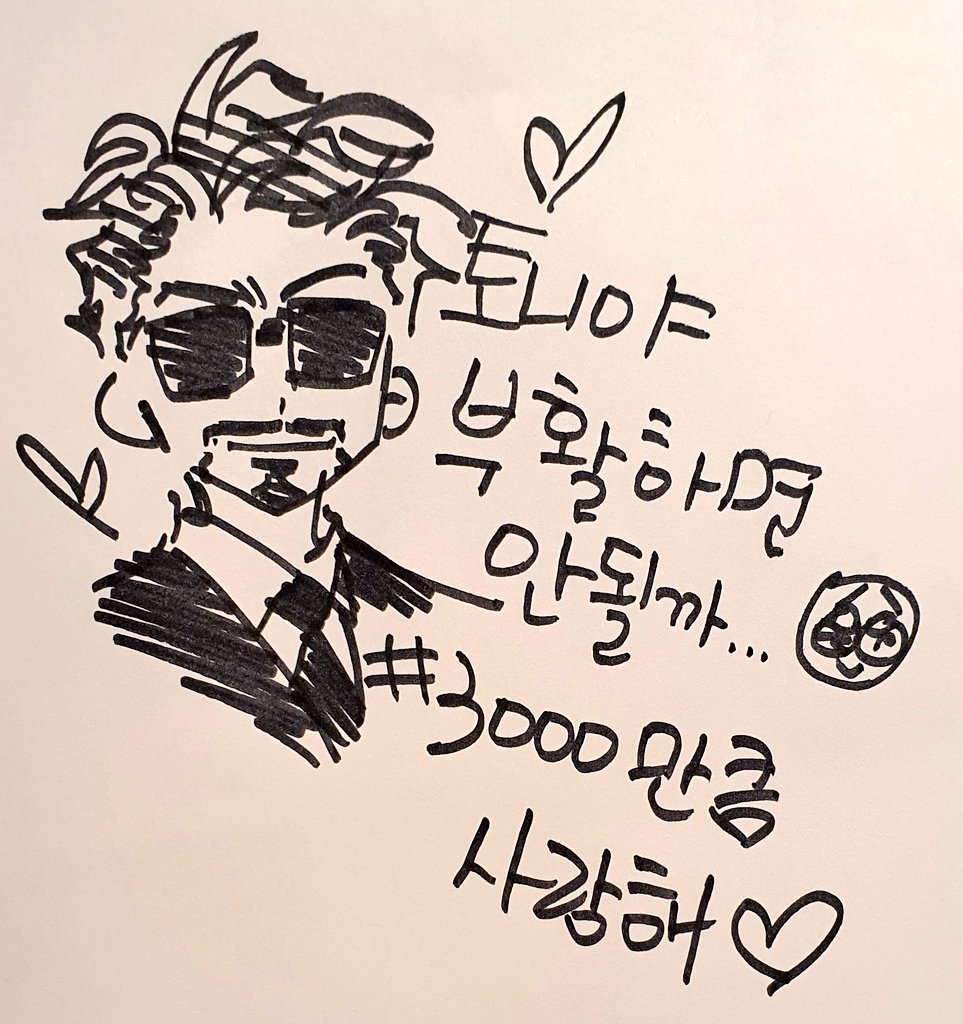 토니야
부활하면
안될까...
#3000만큼
사랑해